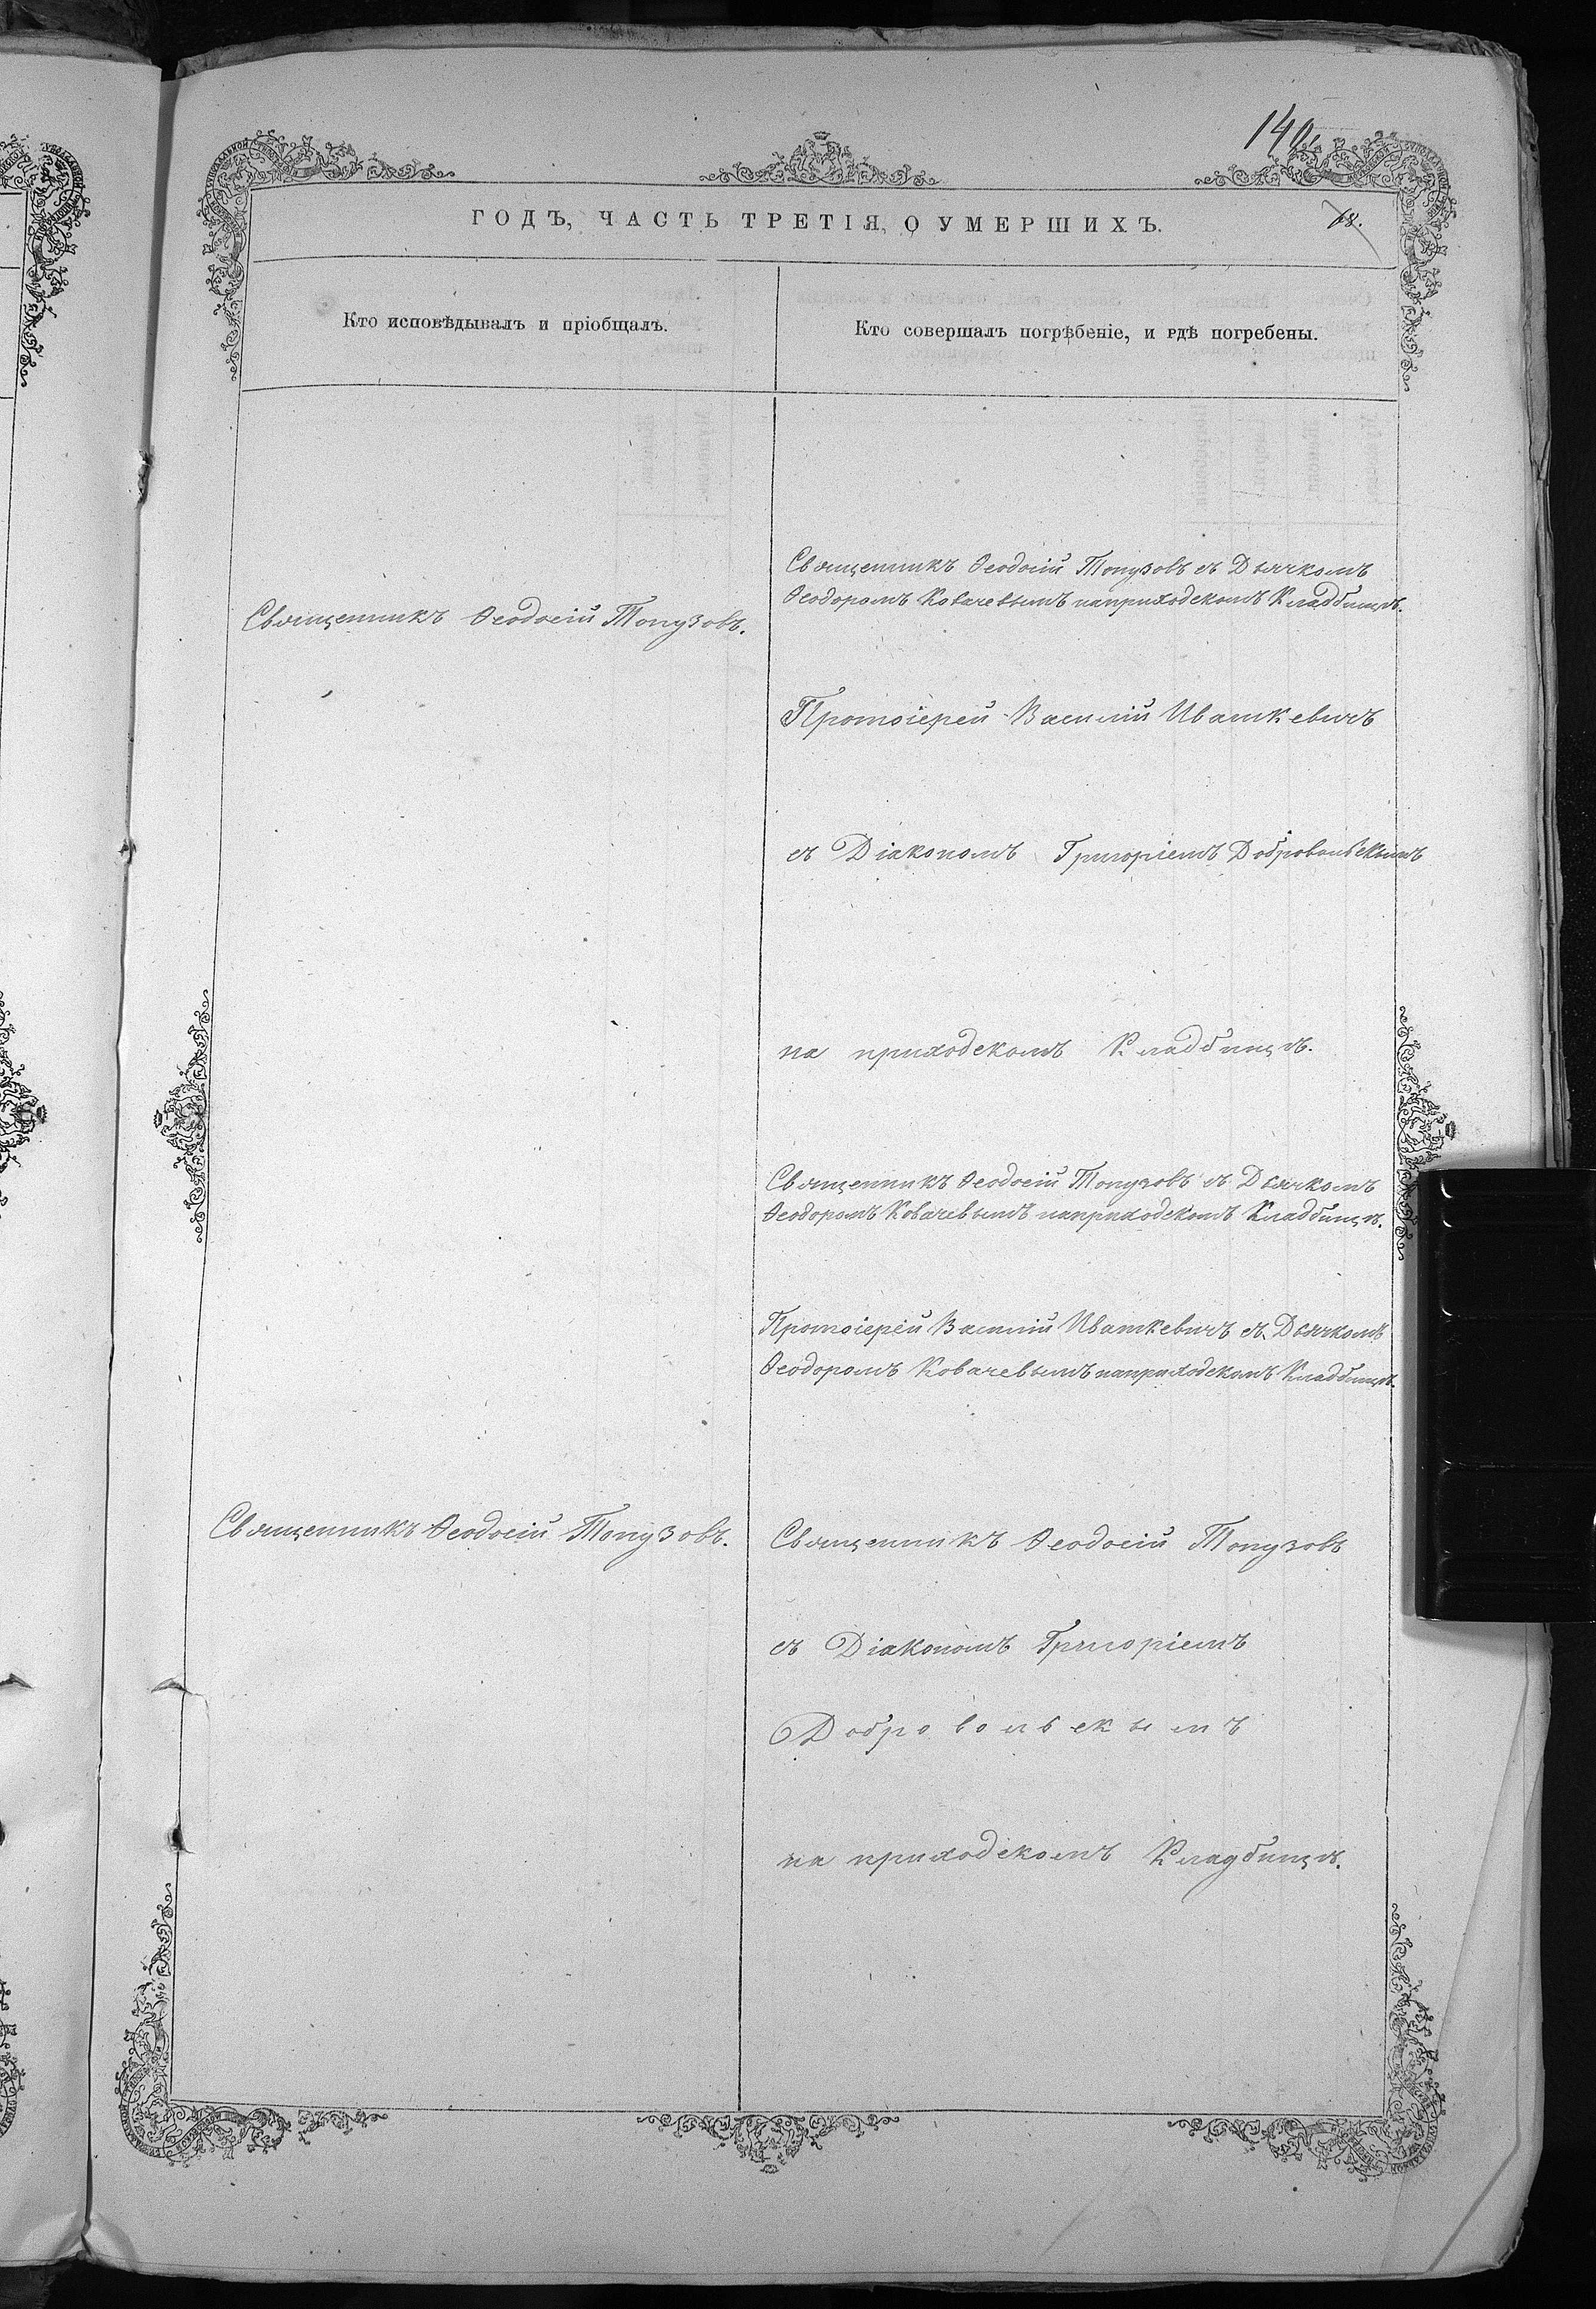 140.
ГОДЪ, ЧАСТЬ ТРЕТІЯ, О УМЕРШИХЪ.
68.
Кто исповѣдывалъ и пріобщалъ.
Кто совершалъ погрѣбеніе, и гдѣ погребены.
Священникъ Ѳеодосій Топузовъ съ Дьячкомъ
Ѳеодоромъ Ковачевымъ наприходскомъ Кладбищѣ.
Священникъ Ѳеодосій Топузовъ.
Протоіерей Василій Ивашкевичъ
съ Діакономъ Григоріемъ Добровольскимъ
на приходскомъ Кладбищѣ.
Священникъ Ѳеодосій Топузовъ съ Дьячкомъ
Ѳеодоромъ Ковачевымъ наприходскомъ Кладбищѣ.
Протоіерей Василій Ивашкевичъ съ Дьячкомъ
Ѳеодоромъ Ковачевымъ наприходскомъ Кладбищѣ.
Священникъ Ѳеодосій Топузовъ.
Священникъ Ѳеодосій Топузовъ
съ Діакономъ Григоріемъ
Добровольскымъ
на приходскомъ Кладбищѣ.